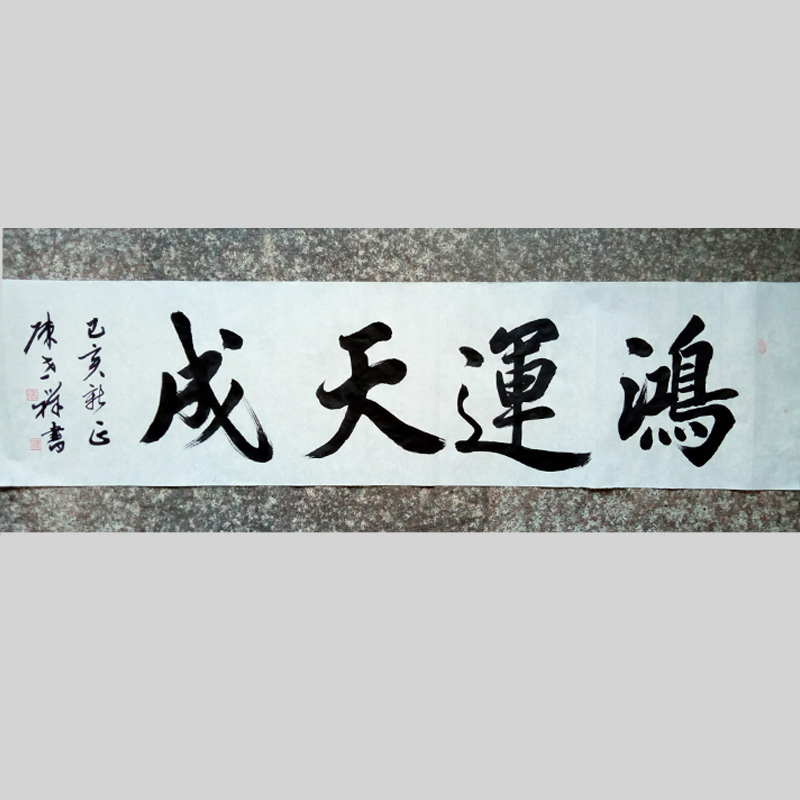 鴻運天成
己亥新正
陳書